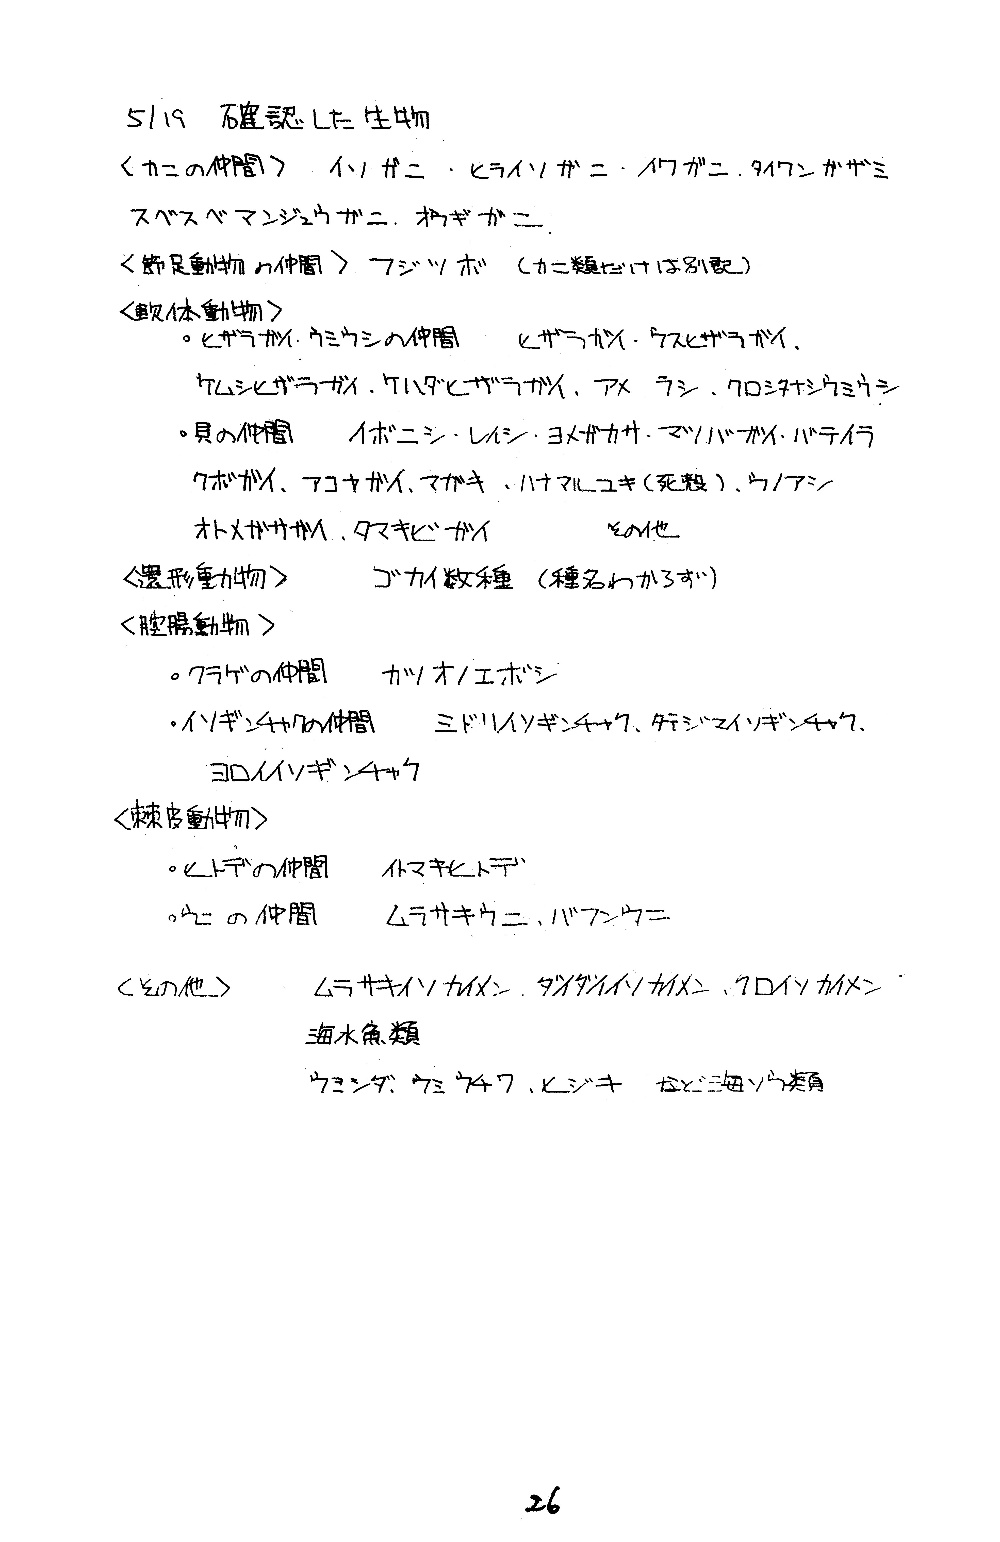 5/19 確認した生物
〈カニの仲間〉 イソガニ・ヒライソガニ・イワガニ、タイワンガザミ
スベスベマンジュウガニ、オウギガニ
〈節足動物の仲間〉 フジツボ (カニ類だけは別記)
〈軟体動物〉
・ヒザラガイ・ウミウシの仲間 ヒザラガイ・ウスヒザラガイ、
ケムシヒザラガイ、ケハダヒザラガイ、アメ ラシ、クロシタナシウミウシ
・貝の仲間 イボニシ・レイシ・ヨメガカサ・マツバガイ・バテイラ
クボガイ、アコヤガイ、マガキ、ハナマルユキ(死殻)、ウノアシ
オトメガサガイ、タマキビガイ その他
〈環形動物〉 ゴカイ数種 (種名わからず)
〈腔腸動物〉
・クラゲの仲間 カツオノエボシ
・イソギンチャクの仲間 ミドリイソギンチャク、タテジマイソギンチャク、
ヨロイイソギンチャク
〈棘皮動物〉
・ヒトデの仲間 イトマキヒトデ
・ウニの仲間 ムラサキウニ、バフンウニ
〈その他〉 ムラサキイソカイメン、ダイダイイソカイメン、クロイソカイメン
海水魚類
ウミンダ、ウミウチワ、ヒジキ など海ソウ類
26